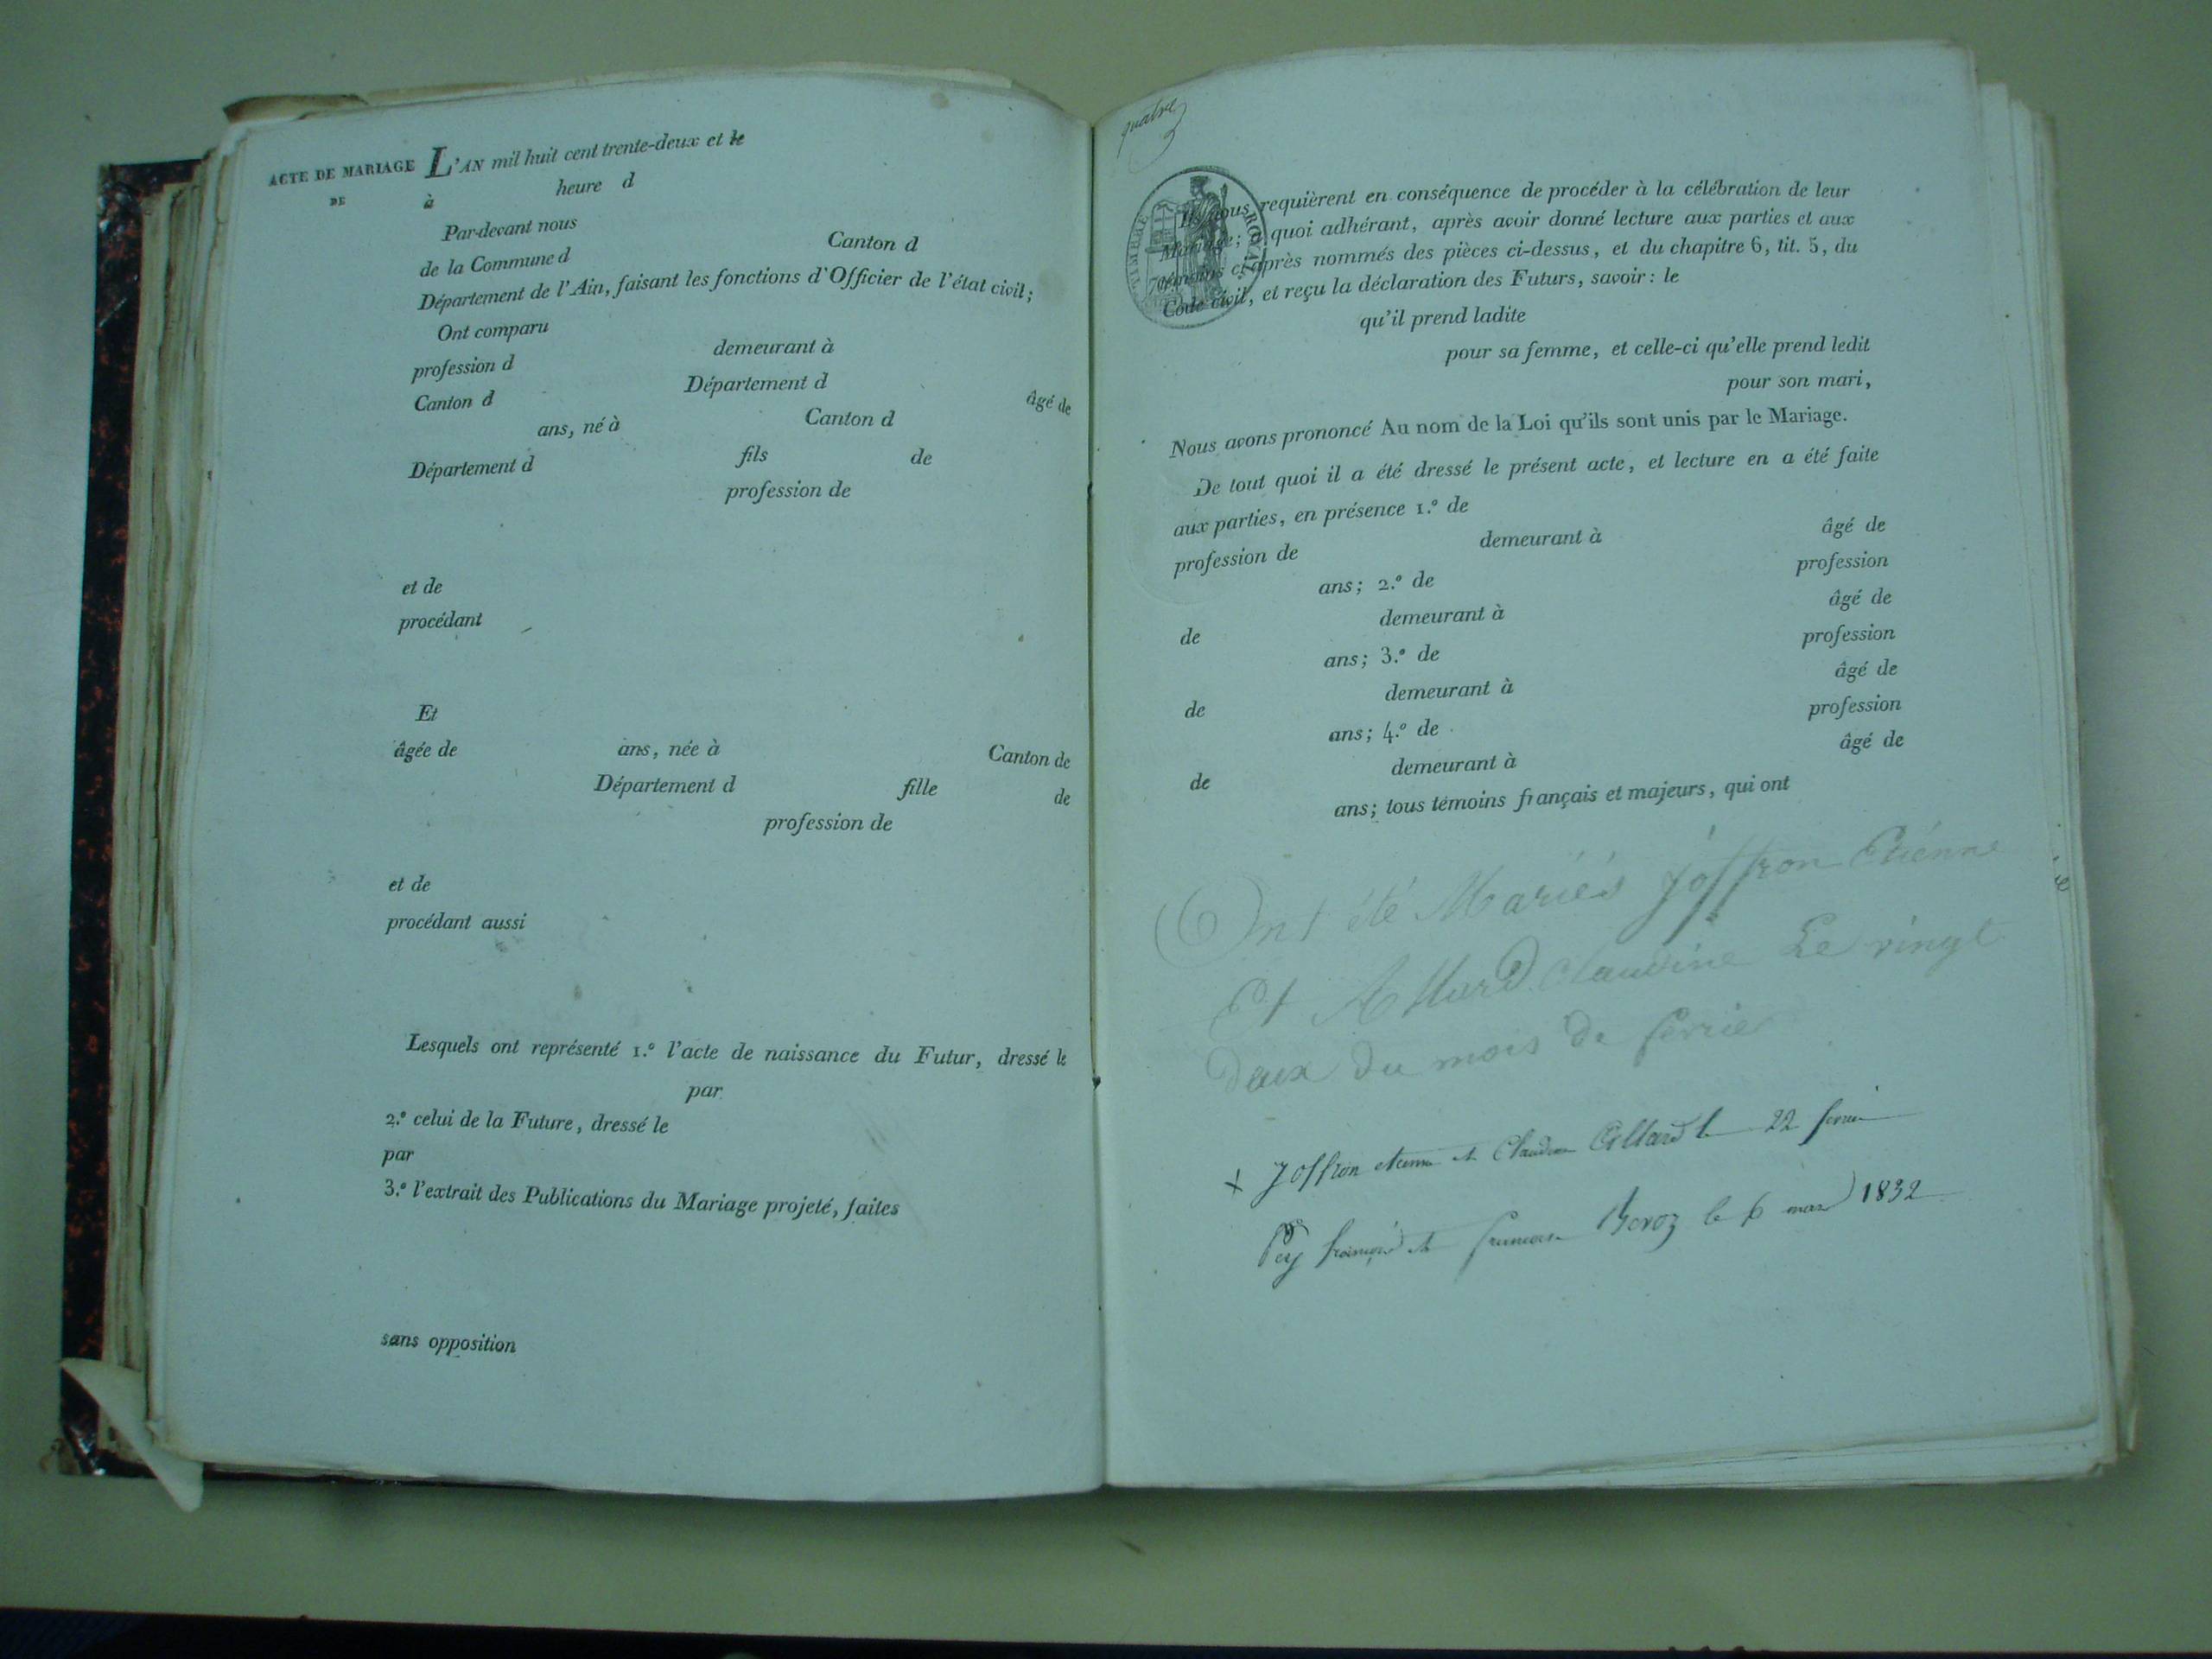 ACTE DE MARIAGE L'AN mil huit cent trente-deux et le
DE à heure d
Par-devant nous
de la Commune d Canton d
Département de l'Ain, faisant les fonctions d'Officier de l'état civil;
Ont comparu
profession d demeurant à
Canton d Département d âgé de
ans, né à Canton d
Département d fils de
profession de
et de
procédant
Et
âgée de ans, née à Canton de
Département d fille de
profession de
et de
procédant aussi
Lesquels ont représenté 1.º l'acte de naissance du Futur, dressé le
par
2.º celui de la Future, dressé le
par
3.º l'extrait des Publications du Mariage projeté, faites
sans opposition
quatre
TIMBRE ROYAL
Ils nous requièrent en conséquence de procéder à la célébration de leur
Mariage; à quoi adhérant, après avoir donné lecture aux parties et aux
témoins ci-après nommés des pièces ci-dessus, et du chapitre 6, tit. 5, du
Code civil, et reçu la déclaration des Futurs, savoir: le
qu'il prend ladite
pour sa femme, et celle-ci qu'elle prend ledit
pour son mari,
Nous avons prononcé Au nom de la Loi qu'ils sont unis par le Mariage.
De tout quoi il a été dressé le présent acte, et lecture en a été faite
aux parties, en présence 1.º de
profession de demeurant à âgé de
ans; 2.º de profession
de demeurant à âgé de
ans; 3.º de profession
de demeurant à âgé de
ans; 4.º de profession
de demeurant à âgé de
ans; tous témoins français et majeurs, qui ont
Ont été Mariés Joffron Etiénne
Et Allard Claudine Le vingt
Deux Du mois De fevrier
x Joffron etienne et Claudine Allard le 22 fevrier
Pey françois et francoise le 6 mars 1832